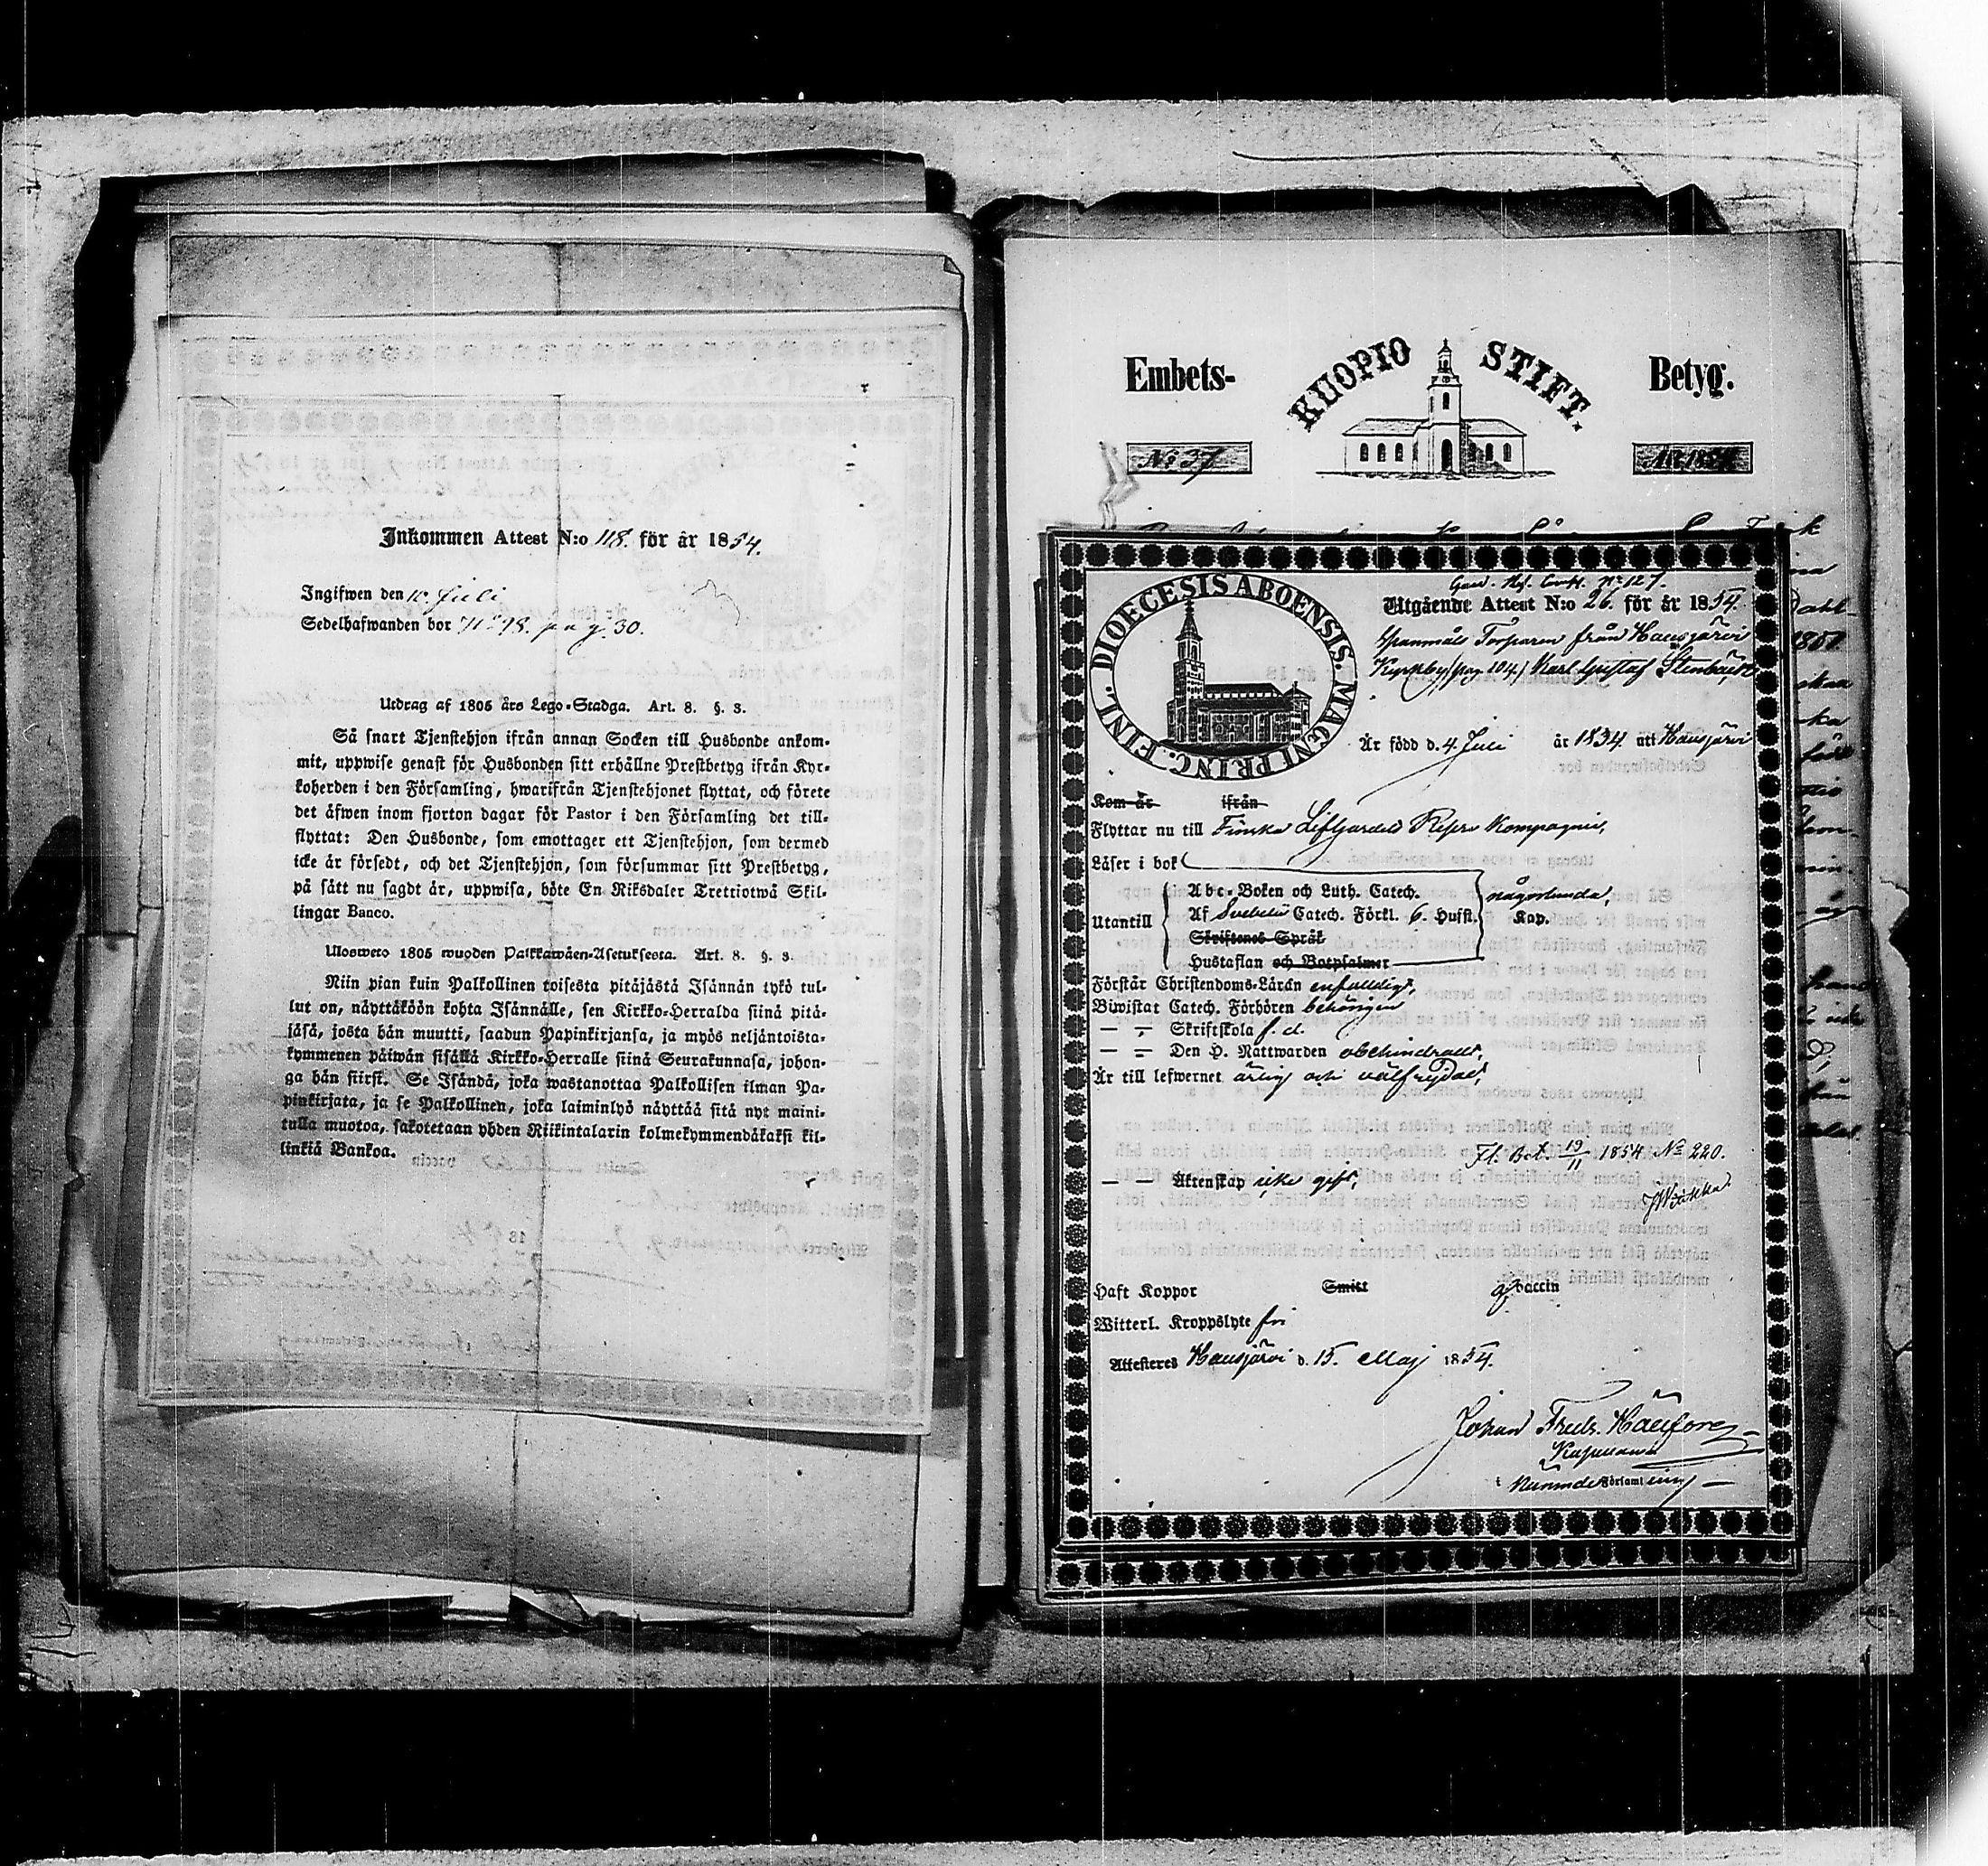 Inkommen Attest N:o 118. för år 1854.
Ingifwen den 10. Juli
Sedelhafwanden bor N:o 98. pag. 30.
Utdrag af 1805 års Lego-Stadga. Art. 8. §. 3.
Så snart Tjenstehjon ifrån annan Socken till Husbonde ankom-
mit, uppwise genast för Husbonden sitt erhållne Prestbetyg ifrån Kyr-
koherden i den Församling, hwarifrån Tjenstehjonet flyttat, och förete
det äfwen inom fjorton dagar för Pastor i den Församling det till-
flyttat: Den Husbonde, som emottager ett Tjenstehjon, som dermed
icke är försedt, och det Tjenstehjon, som försummar sitt Prestbetyg,
på sätt nu sagdt är, uppwisa, böte En Riksdaler Trettiotwå Skil-
lingar Banco.
Ulosweto 1805 wuoden Palkkawäen-Asetuksesta. Art. 8. §. 3.
Niin pian kuin Palkollinen toisesta pitäjästä Isännän tykö tul-
lut on, näyttäköön kohta Isännälle, sen Kirkko-Herralda siinä pitä-
jäsä, josta hän muutti, saadun Papinkirjansa, ja myös neljäntoista-
kymmenen päiwän sisällä Kirkko-Herralle siinä Seurakunnasa, johon-
ga hän siirsi. Se Isändä, joka wastanottaa Palkollisen ilman Pa-
pinkirjata, ja se Palkollinen, joka laiminlyö näyttää sitä nyt maini-
tulla muotoa, sakotetaan yhden Riikintalarin kolmekymmendäkaksi kil-
linkiä Bankoa.
Embets- KUOPIO STIFT. Betyg.
No 37 År 1854
DIOECESIS ABOENSIS. MAGNI PRINC. FINL.
No 127.
Utgående Attest N:o 26. för år 1854.
Spanmåls Torparen från Hausjärvi
Kyrkby (pag 104) Karl Gustaf
Är född d. 4. Juli år 1834. uti Hausjärvi
Kom år ifrån
Flyttar nu till Finska Lifgardets Reserv Kompagnie,
Läser i bok
Utantill
Abc-Boken och Luth. Catech. någorlunda,
Af Svebelii Catech. Förkl. 6. Hufst. Kap.
Skriftenes Språk
Hustaflan och Botpsalmer
Förstår Christendoms-Läran enfaldigt,
Biwistat Catech. Förhören behörigen
— „ — Skriftskola f. d.
— „ — Den H. Nattwarden obehindradt,
Är till lefwernet ärlig och välfrejdad,
Fl. Bet. 19/11 1854 No 220.
— — Äktenskap icke gift,
Haft Koppor Smitt vaccin
Witterl. Kroppslyte fri
Attesteras Hausjärvi d. 15. Maj 1854.
Johan Fredr.
i Församl